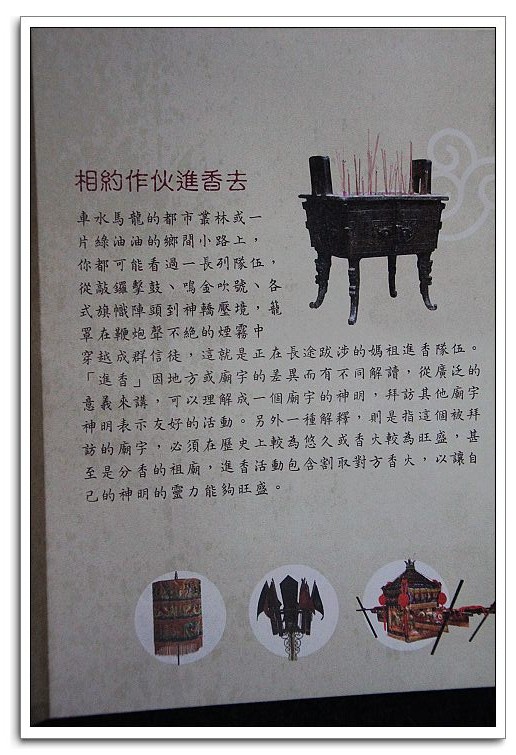 相約作伙進香去
車水馬龍的都市叢林或一
片綠油油的鄉間小路上，
你都可能看過一長列隊伍，
從敲鑼擊鼓、鳴金吹號、各
式旗幟陣頭到神轎壓境，籠
罩在鞭炮聲不絕的煙霧中
穿越成群信徒，這就是正在長途跋涉的媽祖進香隊伍。
「進香」因地方或廟宇的差異而有不同解讀，從廣泛的
意義來講，可以理解成一個廟宇的神明，拜訪其他廟宇
神明表示友好的活動。另外一種解釋，則是指這個被拜
訪的廟宇，必須在歷史上較為悠久或香火較為旺盛，甚
至是分香的祖廟，進香活動包含割取對方香火，以讓自
己的神明的靈力能夠旺盛。